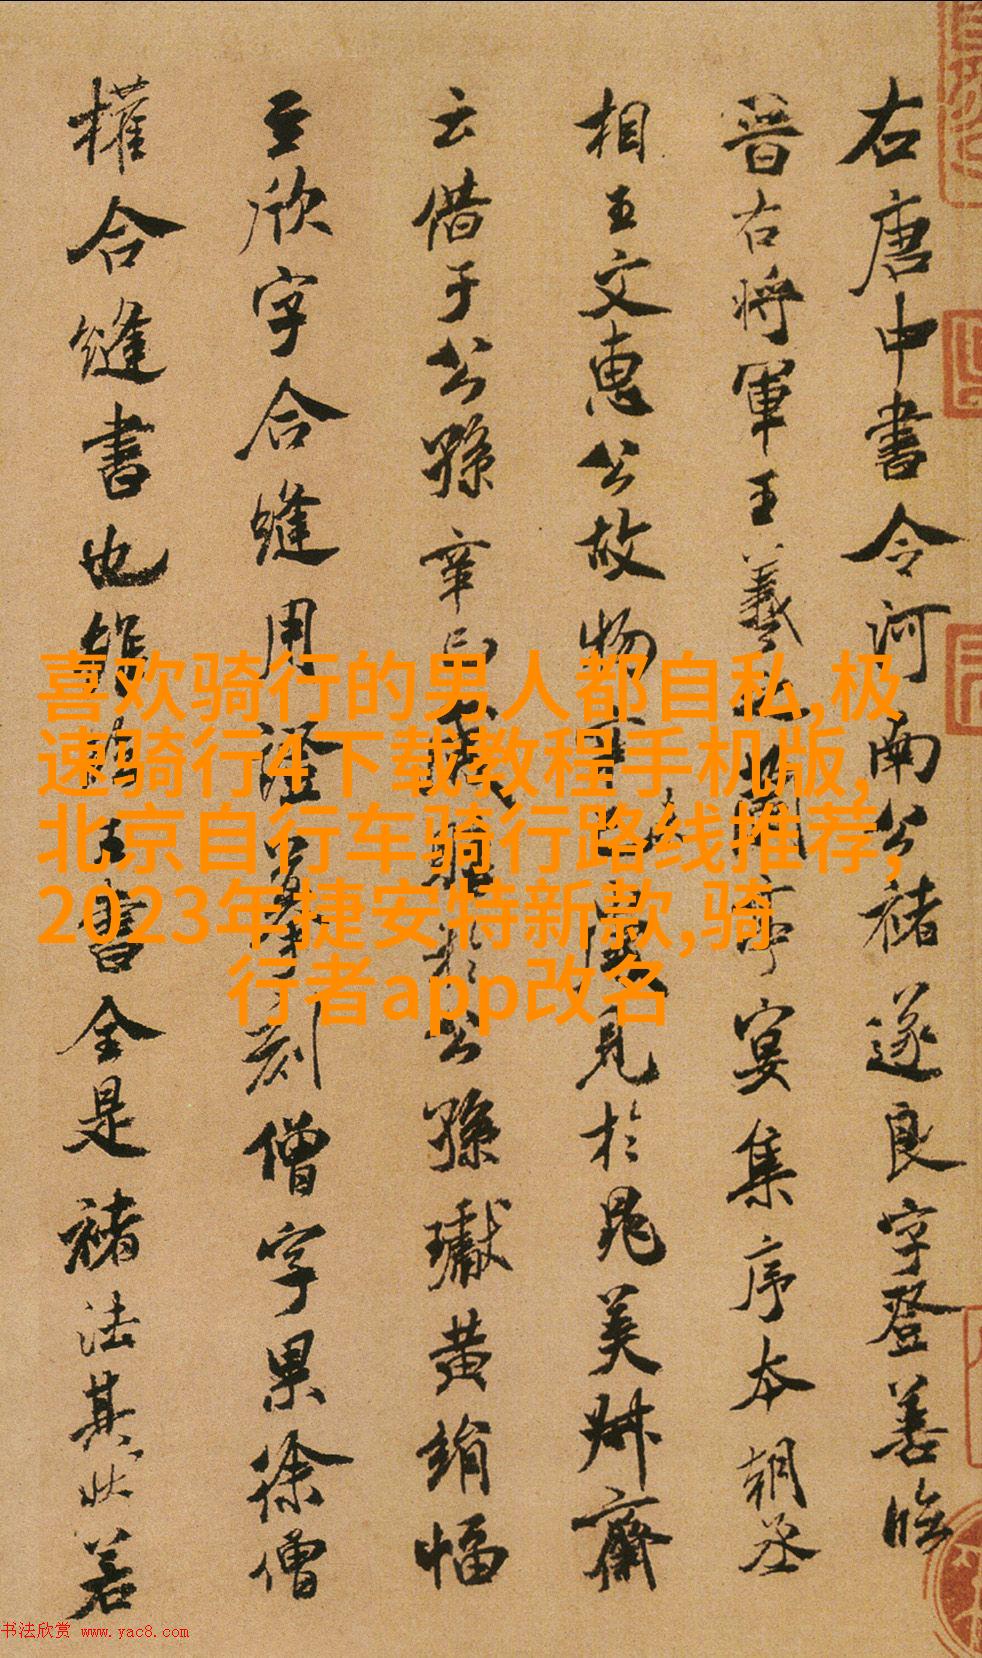 右唐中書令河南公褚遂良字登善臨
晉右將軍王羲之蘭亭宴集序本朝丞
相王文惠公故物
見於昆美姊齋
云借于公孫
公孫瓛黃絹幅
至欣字合縫用證
刻僧字果徐僧
權合縫書也
書全是褚法其狀若
喜欢骑行的男人都自私,极
速骑行4下载教程手机版,
北京自行车骑行路线推荐,
2023年捷安特新款,骑
行者app改名
书法欣赏 www.yac8.com